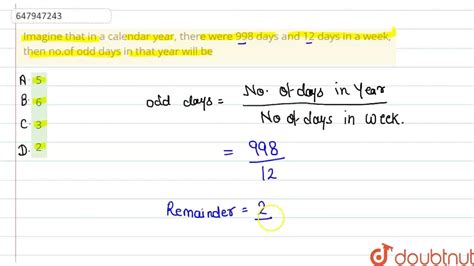 647947243
Imagine that in a calendar year, there were 998 days and 12 days in a week,
then no.of odd days in that year will be
A. 5
B. 6
C. 3
D. 2
odd days = No. of days in Year
No of days in week.
= 998
12
Remainder = 2
doubtnut